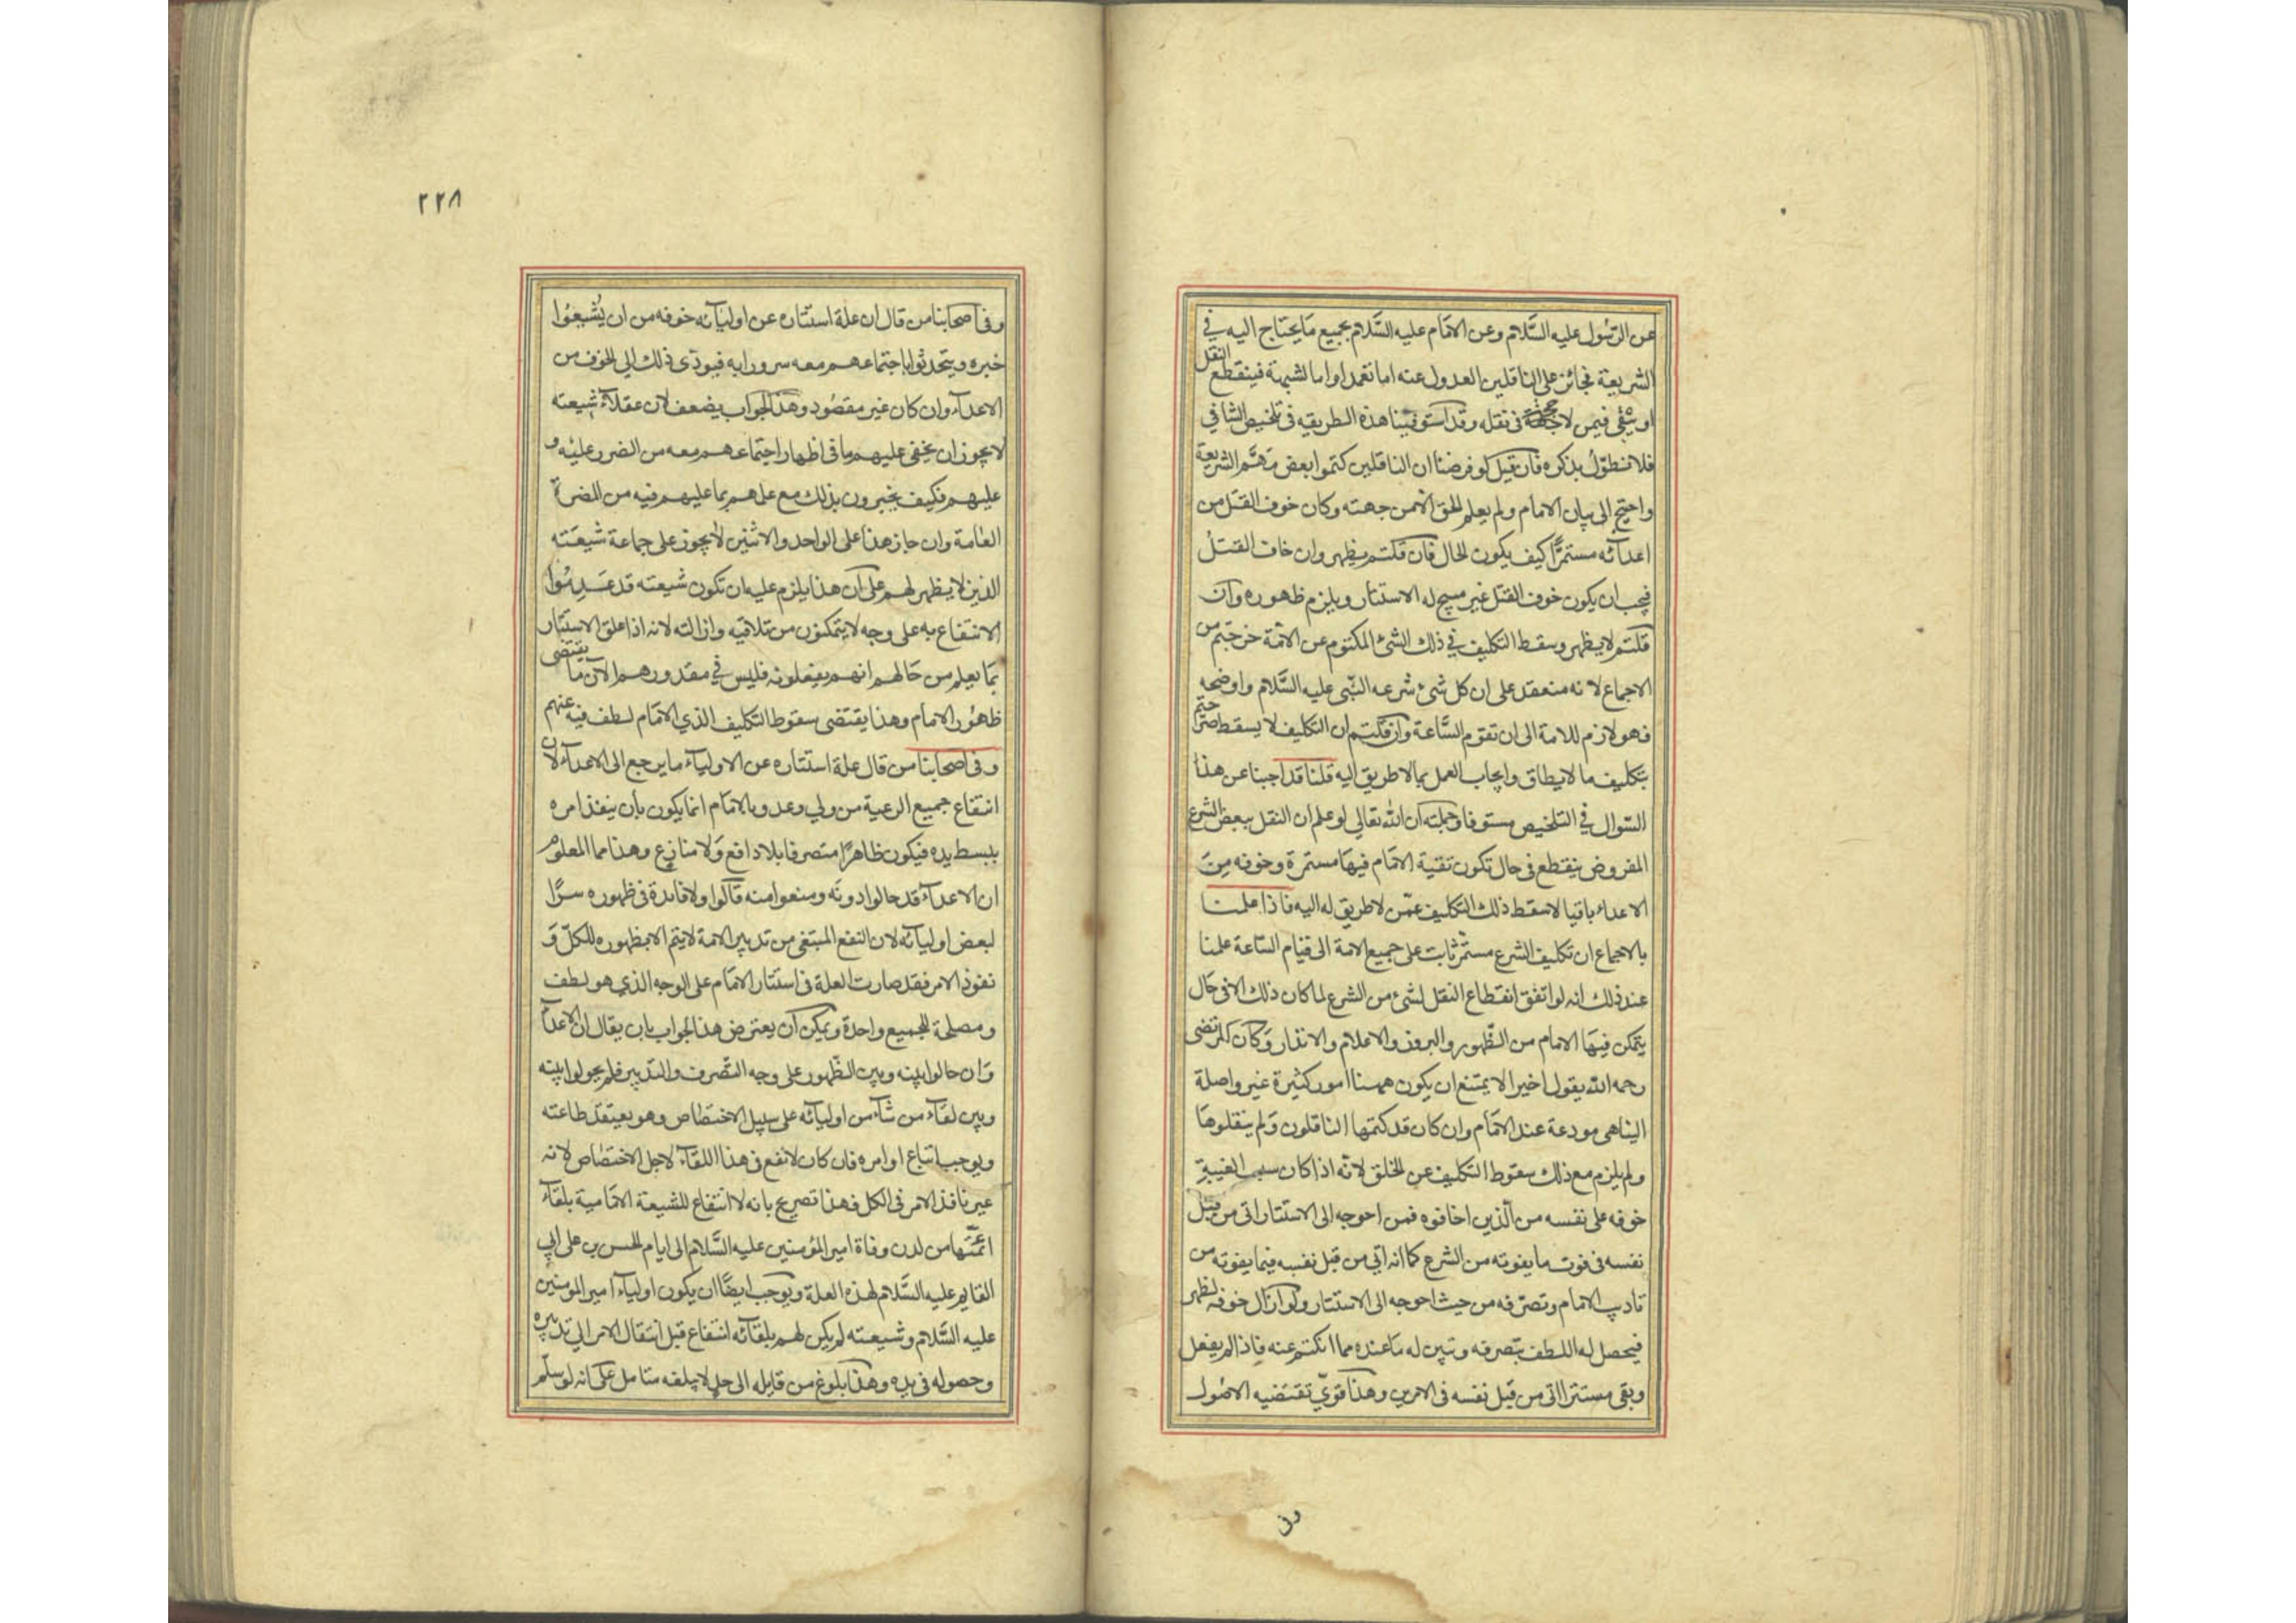 عن الرسول عليه السَّلام وعن الامام عليه السَّلام بجميع ما يحتاج اليه في
الشريعة فجائز على الناقلين العدول عنه اما تعمدا واما لشبهة فينقطع النقل
او يبقى فيمن لا حجة في نقله وقد استوفينا هذه الطريقه فى تلخيص الشافي
فلا نطوّل بذكره فان قيل لو فرضنا ان الناقلين كتموا بعض مهمّ الشريعة
واحتيج الى بيان الامام ولم يعلم الحق الا من جهته وكان خوف القتل من
اعدائه مستمرًّا كيف يكون الحال فان قلتم يظهر وان خاف القتل
فيجب ان يكون خوف القتل غير مبيح له الاستتار ويلزم ظهوره وان
قلتم لا يظهر وسقط التكليف في ذلك الشئ المكتوم عن الامّة خرجتم من
الاجماع لانه منعقد على ان كل شئ شرعه النبّى عليه السَّلام واوضحه
فهو لازم للامة الى ان تقوم السَّاعة وان قلتم ان التكليف لا يسقط صرّحتم
بتكليف ما لا يطاق وايجاب العمل بما لا طريق اليه قلنا قد اجبنا عن هذا
السّوال في التلخيص مستوفا وجملته ان الله تعالى لو علم ان النقل ببعض الشرع
المفروض ينقطع فى حال تكون تقية الامام فيها مستمرة وخوفه من
الاعداء باقيا لاسقط ذلك التكليف عمّن لا طريق له اليه فاذا علمنا
بالاجماع ان تكليف الشرع مستمّر ثابت على جميع الامة الى قيام السّاعة علمنا
عند ذلك انه لو اتفق انقطاع النقل لشئ من الشرع لما كان ذلك الا فى حال
يتمكن فيها الامام من الظّهور والبروز والاعلام والانذار وكان المرتضى
رحمه الله يقول اخيرا لا يمتنع ان يكون ههنا امور كثيرة غير واصلة
الينا هى مودعة عند الامام وان كان قد كتمها الناقلون ولم ينقلوها
ولم يلزم مع ذلك سقوط التكليف عن الخلق لانّه اذا كان سبب الغيبة
خوفه على نفسه من الّذين اخافوه فمن احوجه الى الاستتار اتى من قبل
نفسه فى فوت ما يفوته من الشرع كما انه اتي من قبل نفسه فيما يفوته من
تاديب الامام وتصرّفه من حيث احوجه الى الاستتار ولو ازال خوفه لظهر
فيحصل له اللطف بتصرفه وتبين له ما عنده مما انكتم عنه فاذا لم يفعل
وبقى مستترا اتى من قبل نفسه فى الامرين وهذا قويّ تقتضيه الاصول
وفى
٢٢٨
وفى اصحابنا من قال ان علة استتاره عن اوليائه خوفه من ان يُشيعُوا
خبره ويتحدثوا باجتماعهم معه سرورا به فيودّى ذلك الي الخوف من
الاعداء وان كان غير مقصُود وهذا الجواب يضعف لان عقلاء شيعته
لا يجوز ان يخفى عليهم ما فى اظهار اجتماعهم معه من الضرر عليه و
عليهم فكيف يخبرون بذلك مع علمهم بما عليهم فيه من المضرة
العامة وان جاز هذا على الواحد والاثنين لا يجوز على جماعة شيعته
الذين لا يظهر لهم على ان هذا يلزم عليه ان تكون شيعته قد عدموا
الانتفاع به على وجه لا يتمكنون من تلافيه وازالته لانه اذا علق الاستتار
بما يعلم من حالهم انهم يفعلونه فليس في مقدورهم الان ما يقتضى
ظهُور الامام وهذا يقتضى سقوط التكليف الذي الامام لطف فيه عنهم
وفى اصحابنا من قال علة استتاره عن الاولياء ما يرجع الى الاعداء لان
انتفاع جميع الرعية من ولي وعدو بالامام انما يكون بأن ينفذ امره
ببسط يده فيكون ظاهرًا متصرفا بلا دافع ولا منازع وهذا مما المعلوم
ان الاعداء قد حالوا دونه ومنعوا منه قالوا ولا فائدة فى ظهوره سرًّا
لبعض اوليائه لان النفع المبتغى من تدبير الامة لا يتم الا بظهوره للكلّ و
نفوذ الامر فقد صارت العلة فى استتار الامام على الوجه الذي هو لطف
ومصلحة للجميع واحدة ويمكن ان يعترض هذا الجواب بان يقال ان الاعداء
وان حالوا بينه وبين الظّهور على وجه التّصرف والتدبير فلم يحولوا بينه
وبين لقاء من شاء من اوليائه على سبيل الاختصاص وهو يعتقد طاعته
ويوجب اتباع اوامره فان كان لا نفع فى هذا اللقاء لاجل الاختصاص لانه
غير نافذ الامر فى الكل فهذا تصريح بانه لا انتفاع للشيعة الامامية بلقاء
ائمّتها من لدن وفاة امير المؤمنين عليه السَّلام الى ايام الحسن بن على ابي
القايم عليه السَّلام لهذه العلة ويوجب ايضًا ان يكون اولياء امير المومنين
عليه السَّلام وشيعته لم يكن لهم بلقائه انتفاع قبل انتقال الامر الي تدبيره
وحصوله فى يده وهذا بلوغ من قايله الى حد لا يبلغه متامل على انه لو سلّم